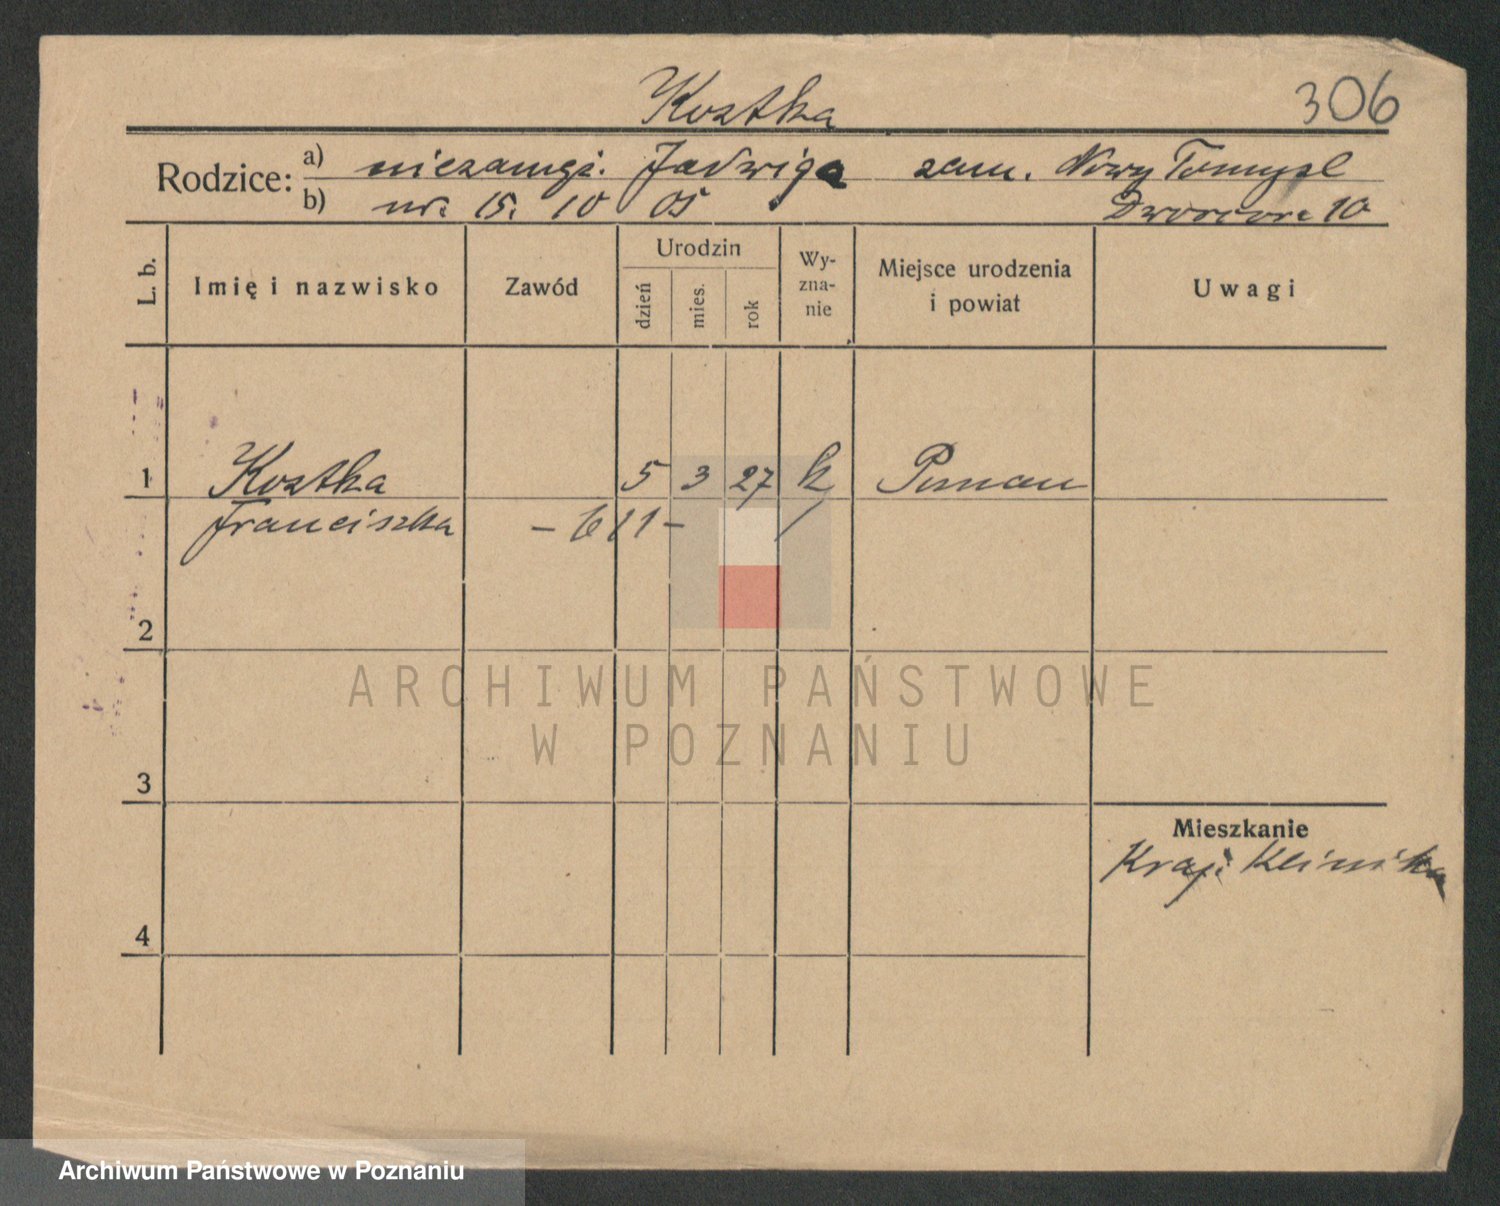 Kostka
306
Rodzice: a) niezamęż. Jadwiga zam. Nowy Tomyśl
b) ur. 15. 10 05 Dworcowa 10
L. b. Imię i nazwisko Zawód Urodzin dzień mies. rok Wy-zna-nie Miejsce urodzenia i powiat Uwagi
1 Kostka 5 3 27 k Poznań
Franciszka – 611 –
2
ARCHIWUM PAŃSTWOWE
W POZNANIU
3
Mieszkanie
Kraj. Klinika
4
Archiwum Państwowe w Poznaniu